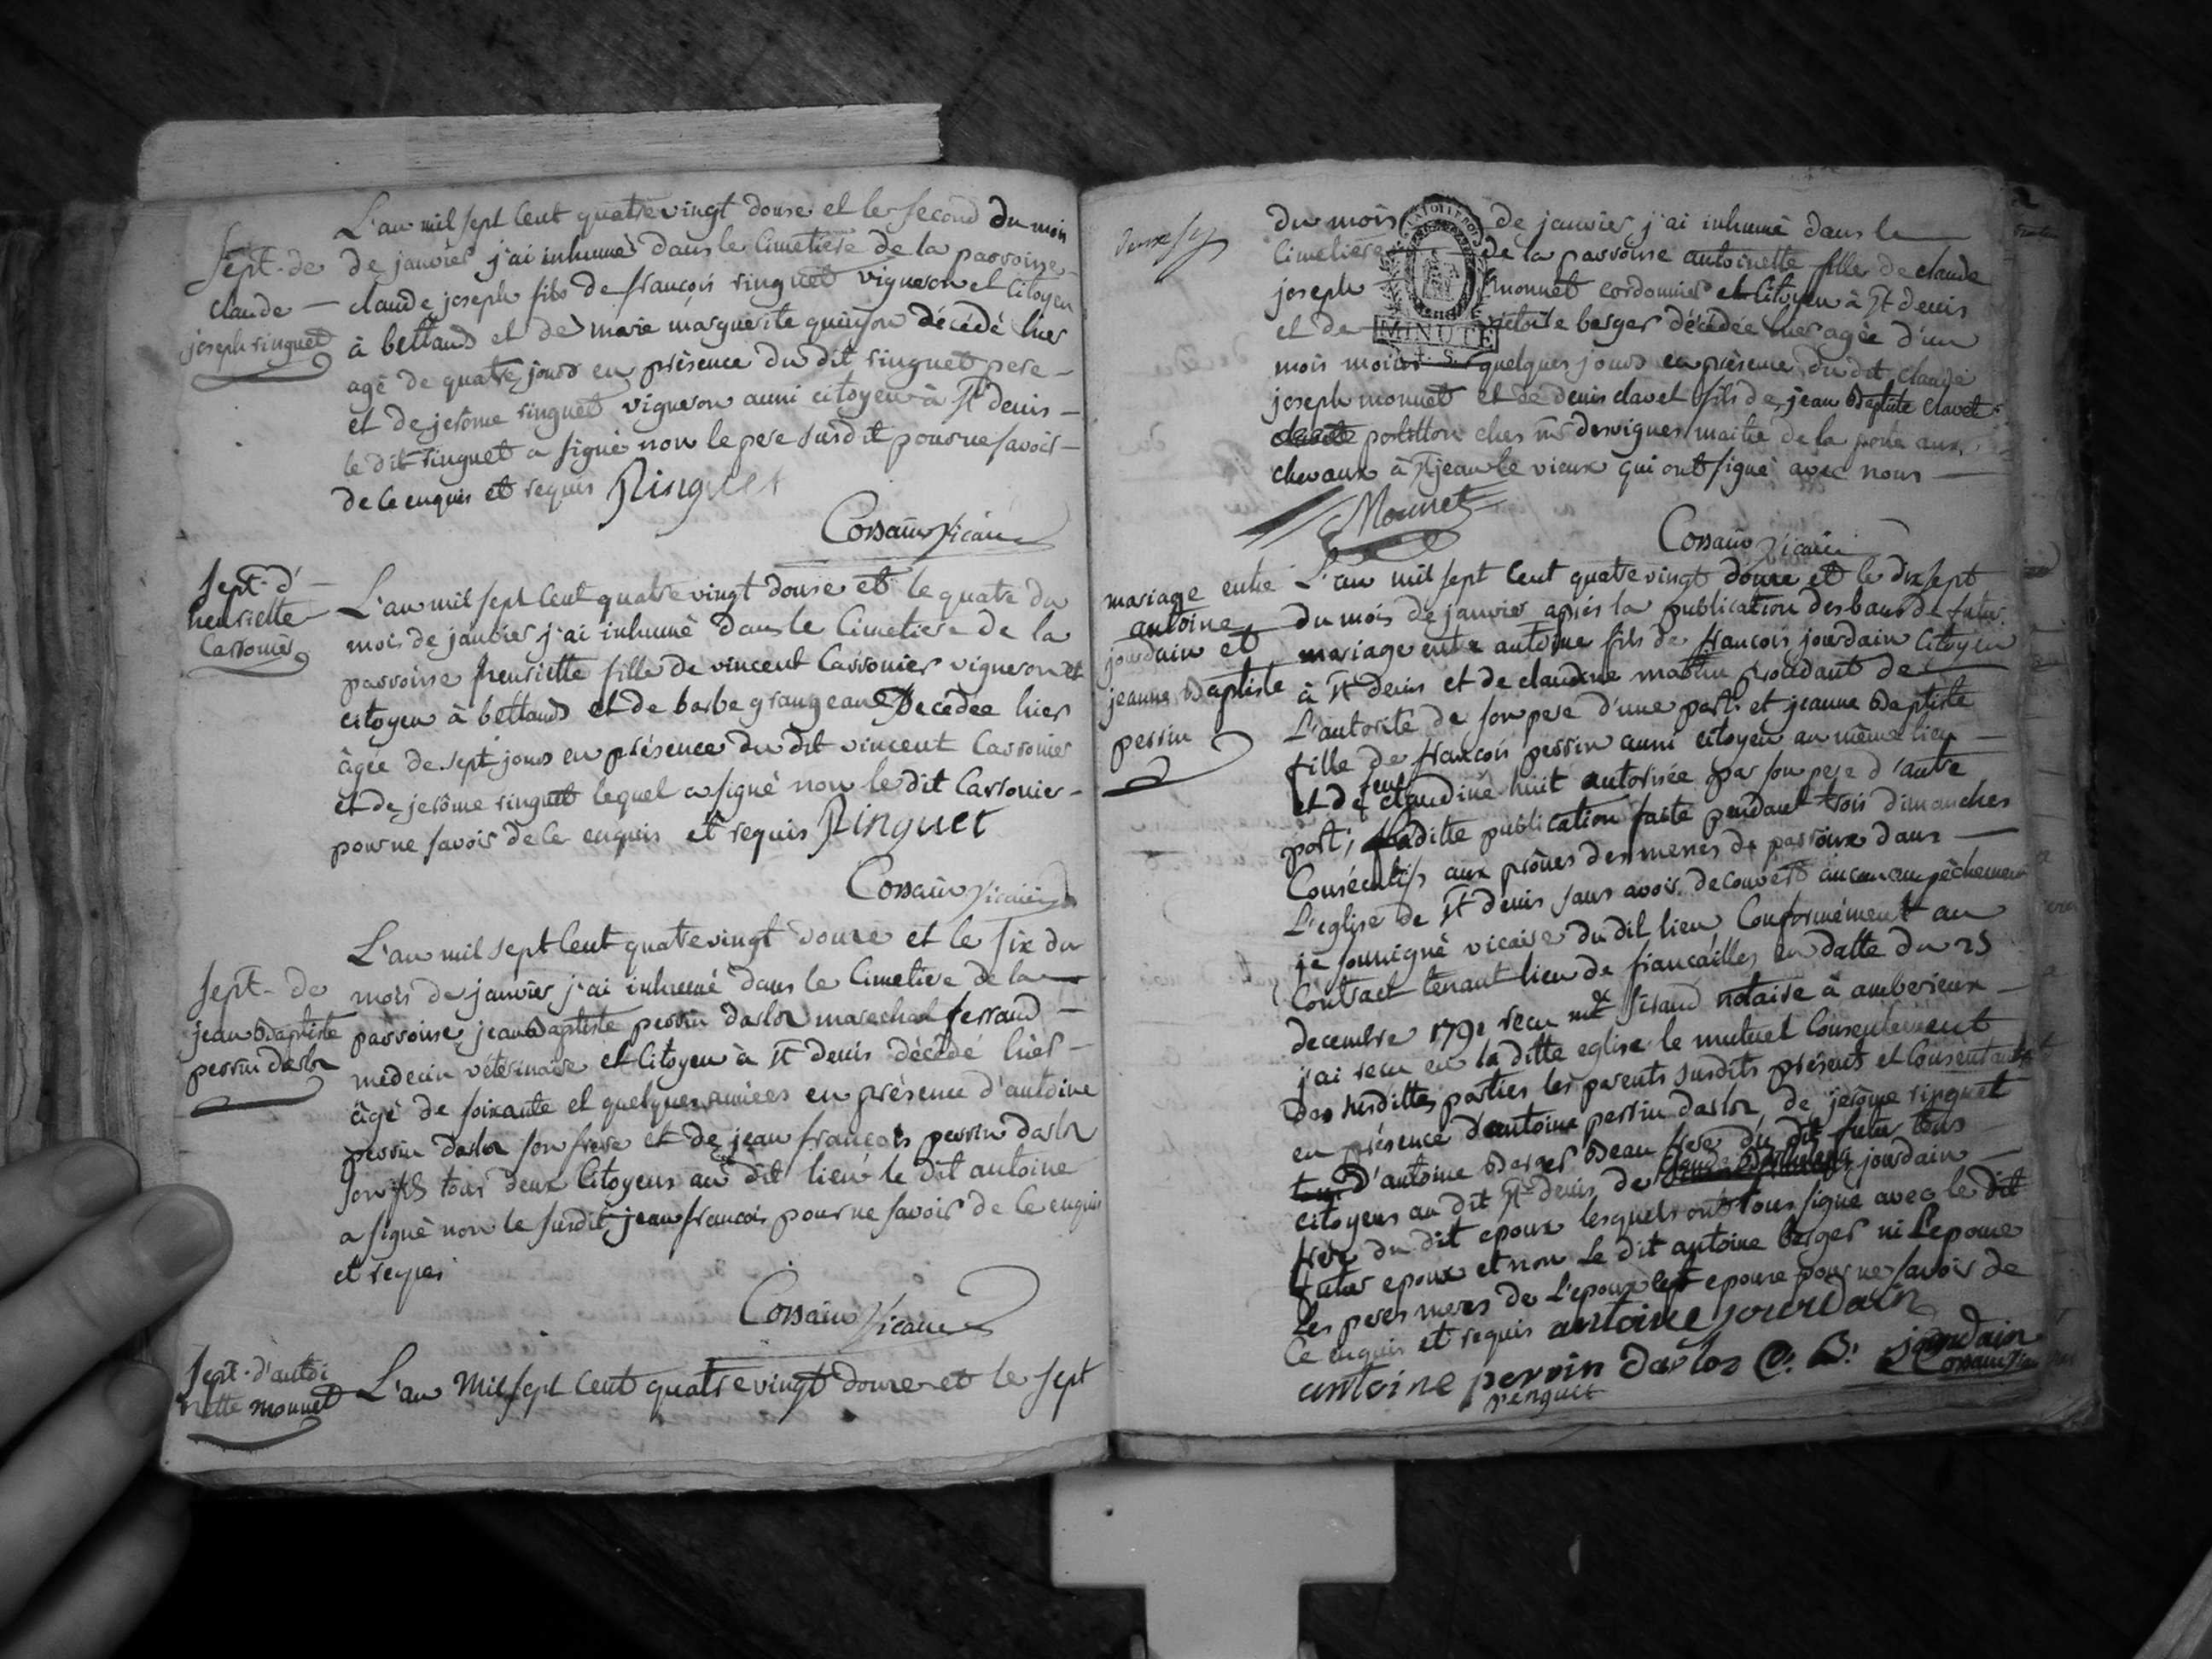 L'an mil sept Cent quatre vingt douse et le second du mois
Sept. de
claude
joseph ringuet
de janvier j'ai inhumé dans le Cimetiere de la parroisse
claude joseph fils de françois ringuet vigneron et Citoyen
à bettand et de marie marguerite guinson décédé hier
agé de quatre jours en présence du dit ringuet pere
et de jerôme ringuet vigneron aussi citoyen à St denis
le dit ringuet a signé non le pere susdit pour ne savoir
de ce enquis et requis Ringuet
Cossain Vicaire
Sept. d'
henriette
Carronier
L'an mil sept Cent quatre vingt douse et le quatre du
mois de janvier j'ai inhumé dans le Cimetiere de la
parroisse henriette fille de vincent Carronier vigneron et
citoyen à bettand et de barbe grangean Decedée hier
âgée de sept jours en présence du dit vincent Carronier
et de jerôme ringuet lequel a signé non le dit Carronier
pour ne savoir de ce enquis et requis Ringuet
Cossain Vicaire
Sept. de
jean Baptiste
perrin darloz
L'an mil sept Cent quatre vingt douze et le six du
mois de janvier j'ai inhumé dans le Cimetiere de la
parroisse jean Baptiste perrin darloz marechal ferrand
medecin véterinaire et Citoyen à St denis décédé hier
âgé de soixante et quelques années en présence d'antoine
perrin darloz son frere et de jean françois perrin darloz
son fils tous deux Citoyens au dit lieu le dit antoine
a signé non le susdit jean francois pour ne savoir de ce enquis
et requis
Cossain Vicaire
Sept. d'antoi
nette monnet
L'an Mil sept Cent quatre vingt douze et le sept
du mois de janvier j'ai inhumé dans le
Cimetiere de la parroisse antoinette fille de claude
joseph monnet cordonnier et Citoyen à St denis
et de berger décédée hier agée d'un
MINUTE
mois moins quelques jours en présence du dit claude
joseph monnet et de denis clavel fils de jean Baptiste clavel
postillon ches mr desvignes maitre de la poste aux
chevaux à St jean le vieux qui ont signé avec nous
Monnet
Cossain Vicaire
mariage entre
antoine
jourdain et
jeanne Baptiste
perrin
L'an mil sept Cent quatre vingt douze et le dix sept
du mois de janvier après la publication des bans de futur
mariage entre antoine fils de françois jourdain Citoyen
à St denis et de claudine procedant de
L'autorité de son pere d'une part: et jeanne Baptiste
fille de francois perrin aussi citoyen au même lieu
et de feue claudine huit autorisée par son pere d'autre
part; laditte publication faite pendant trois dimanches
Consécutifs aux prônes des messes de parroisse dans
L'eglise de St denis sans avoir decouvert aucun empêchement
je soussigné vicaire du dit lieu Conformément au
Contract tenant lieu de fiancailles en datte du 25
decembre 1791 recu me sirand notaire à amberieux
j'ai recu en la ditte eglise le mutuel Consentement
des susdittes parties les parents susdits présents et Consentants
en présence d'antoine perrin darloz, de jerôme ringuet
d'antoine Berger Beau frere du dit futur tous
citoyens au dit St denis de jourdain
frere du dit epoux lesquels ont tous signé avec le dit
futur epoux et non le dit antoine berger ni L'epouse
les peres meres de L'epoux et epouse pour ne savoir de
Ce enquis et requis antoine jourdain
antoine perrin darloz C. B. jourdain
ringuet Cossain